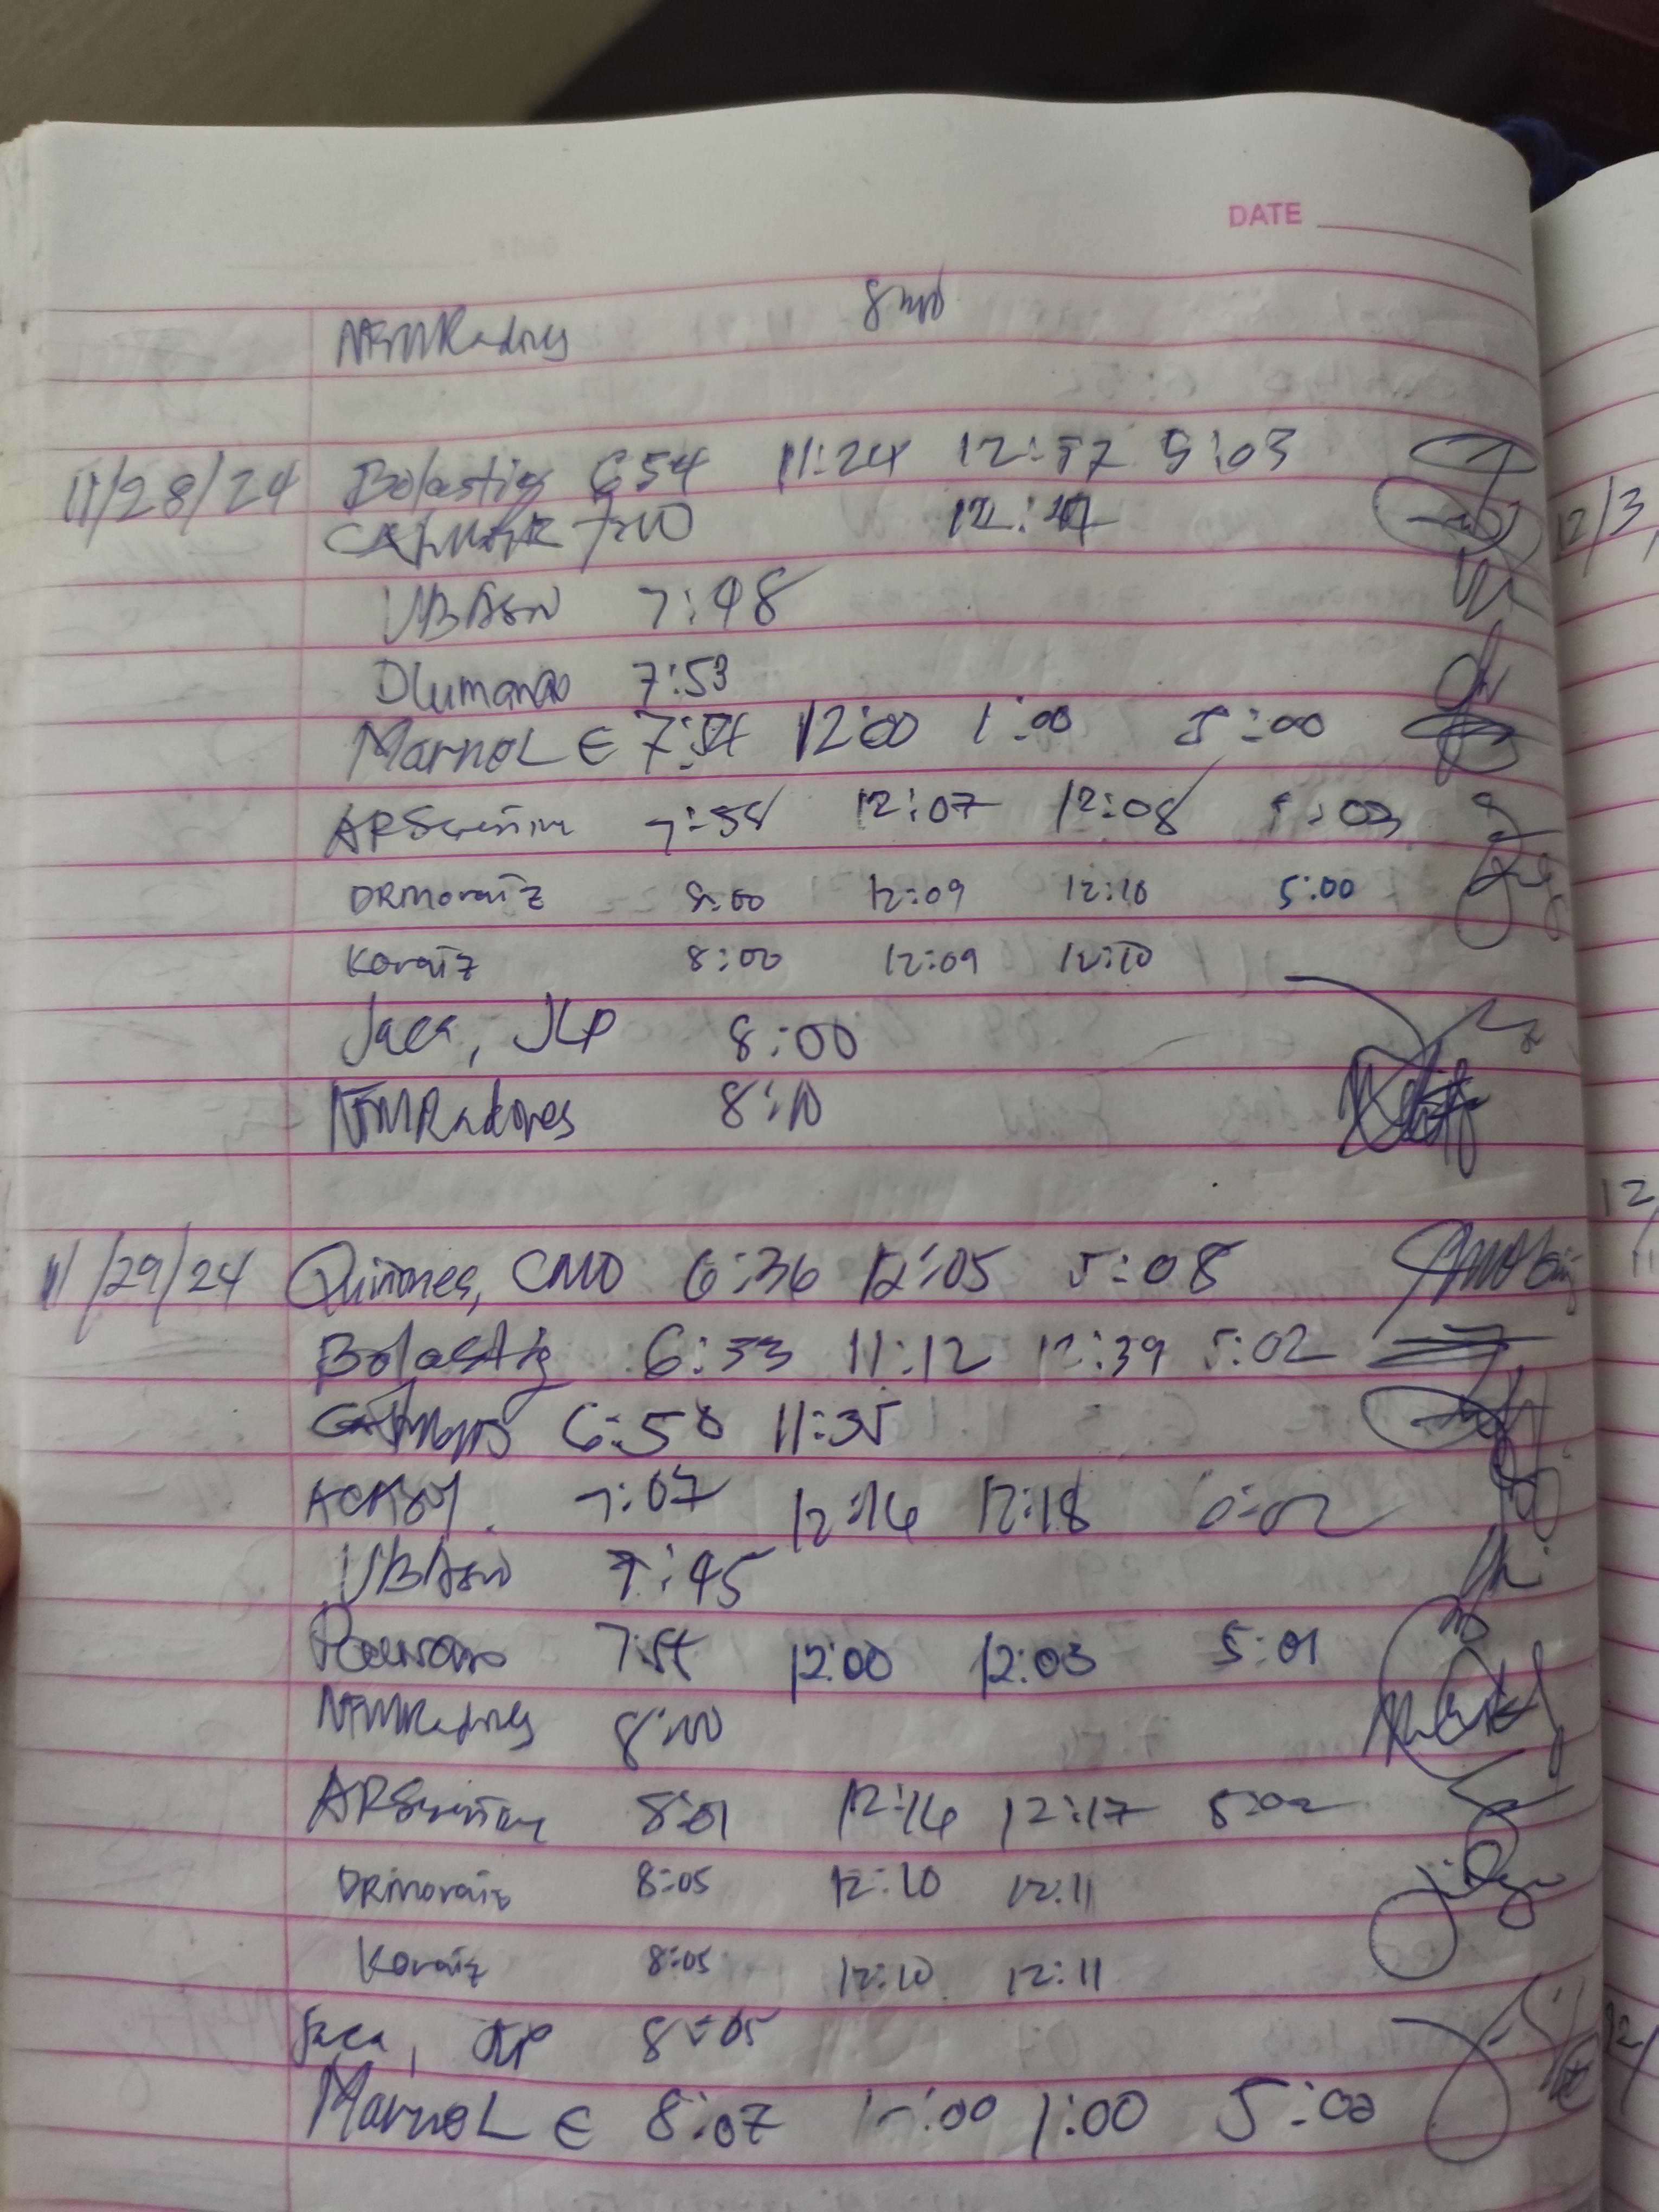 DATE
NFMRadores
11/28/24 Bolastig 6 54 11:24 12:37 5:03
7:10
UBAsn 7:48
Dlumanao 7:53
Marnol E 7:54 12:00 1:00 5:00
7:58 12:07 12:08 5:03
DRMoraiz 8:00 12:09 12:10 5:00
Koraiz 8:00 12:09 12:10
Jaca, JLP 8:00
NFMRadores 8:10
11/29/24 Quiñones, CMO 6:36 12:05 5:08
Bolastig 6:33 11:12 12:39 5:02
6:58 11:35
7:07 12:16 12:18
UBAsn 7:45
7:54 12:00 12:03 5:01
NFMRadores 8:00
8:01 12:16 12:17 5:02
DRMoraiz 8:05 12:10 12:11
Koraiz 8:05 12:10 12:11
Jaca, JLP 8:05
Marnol E 8:07 12:00 1:00 5:00
12/3
12/